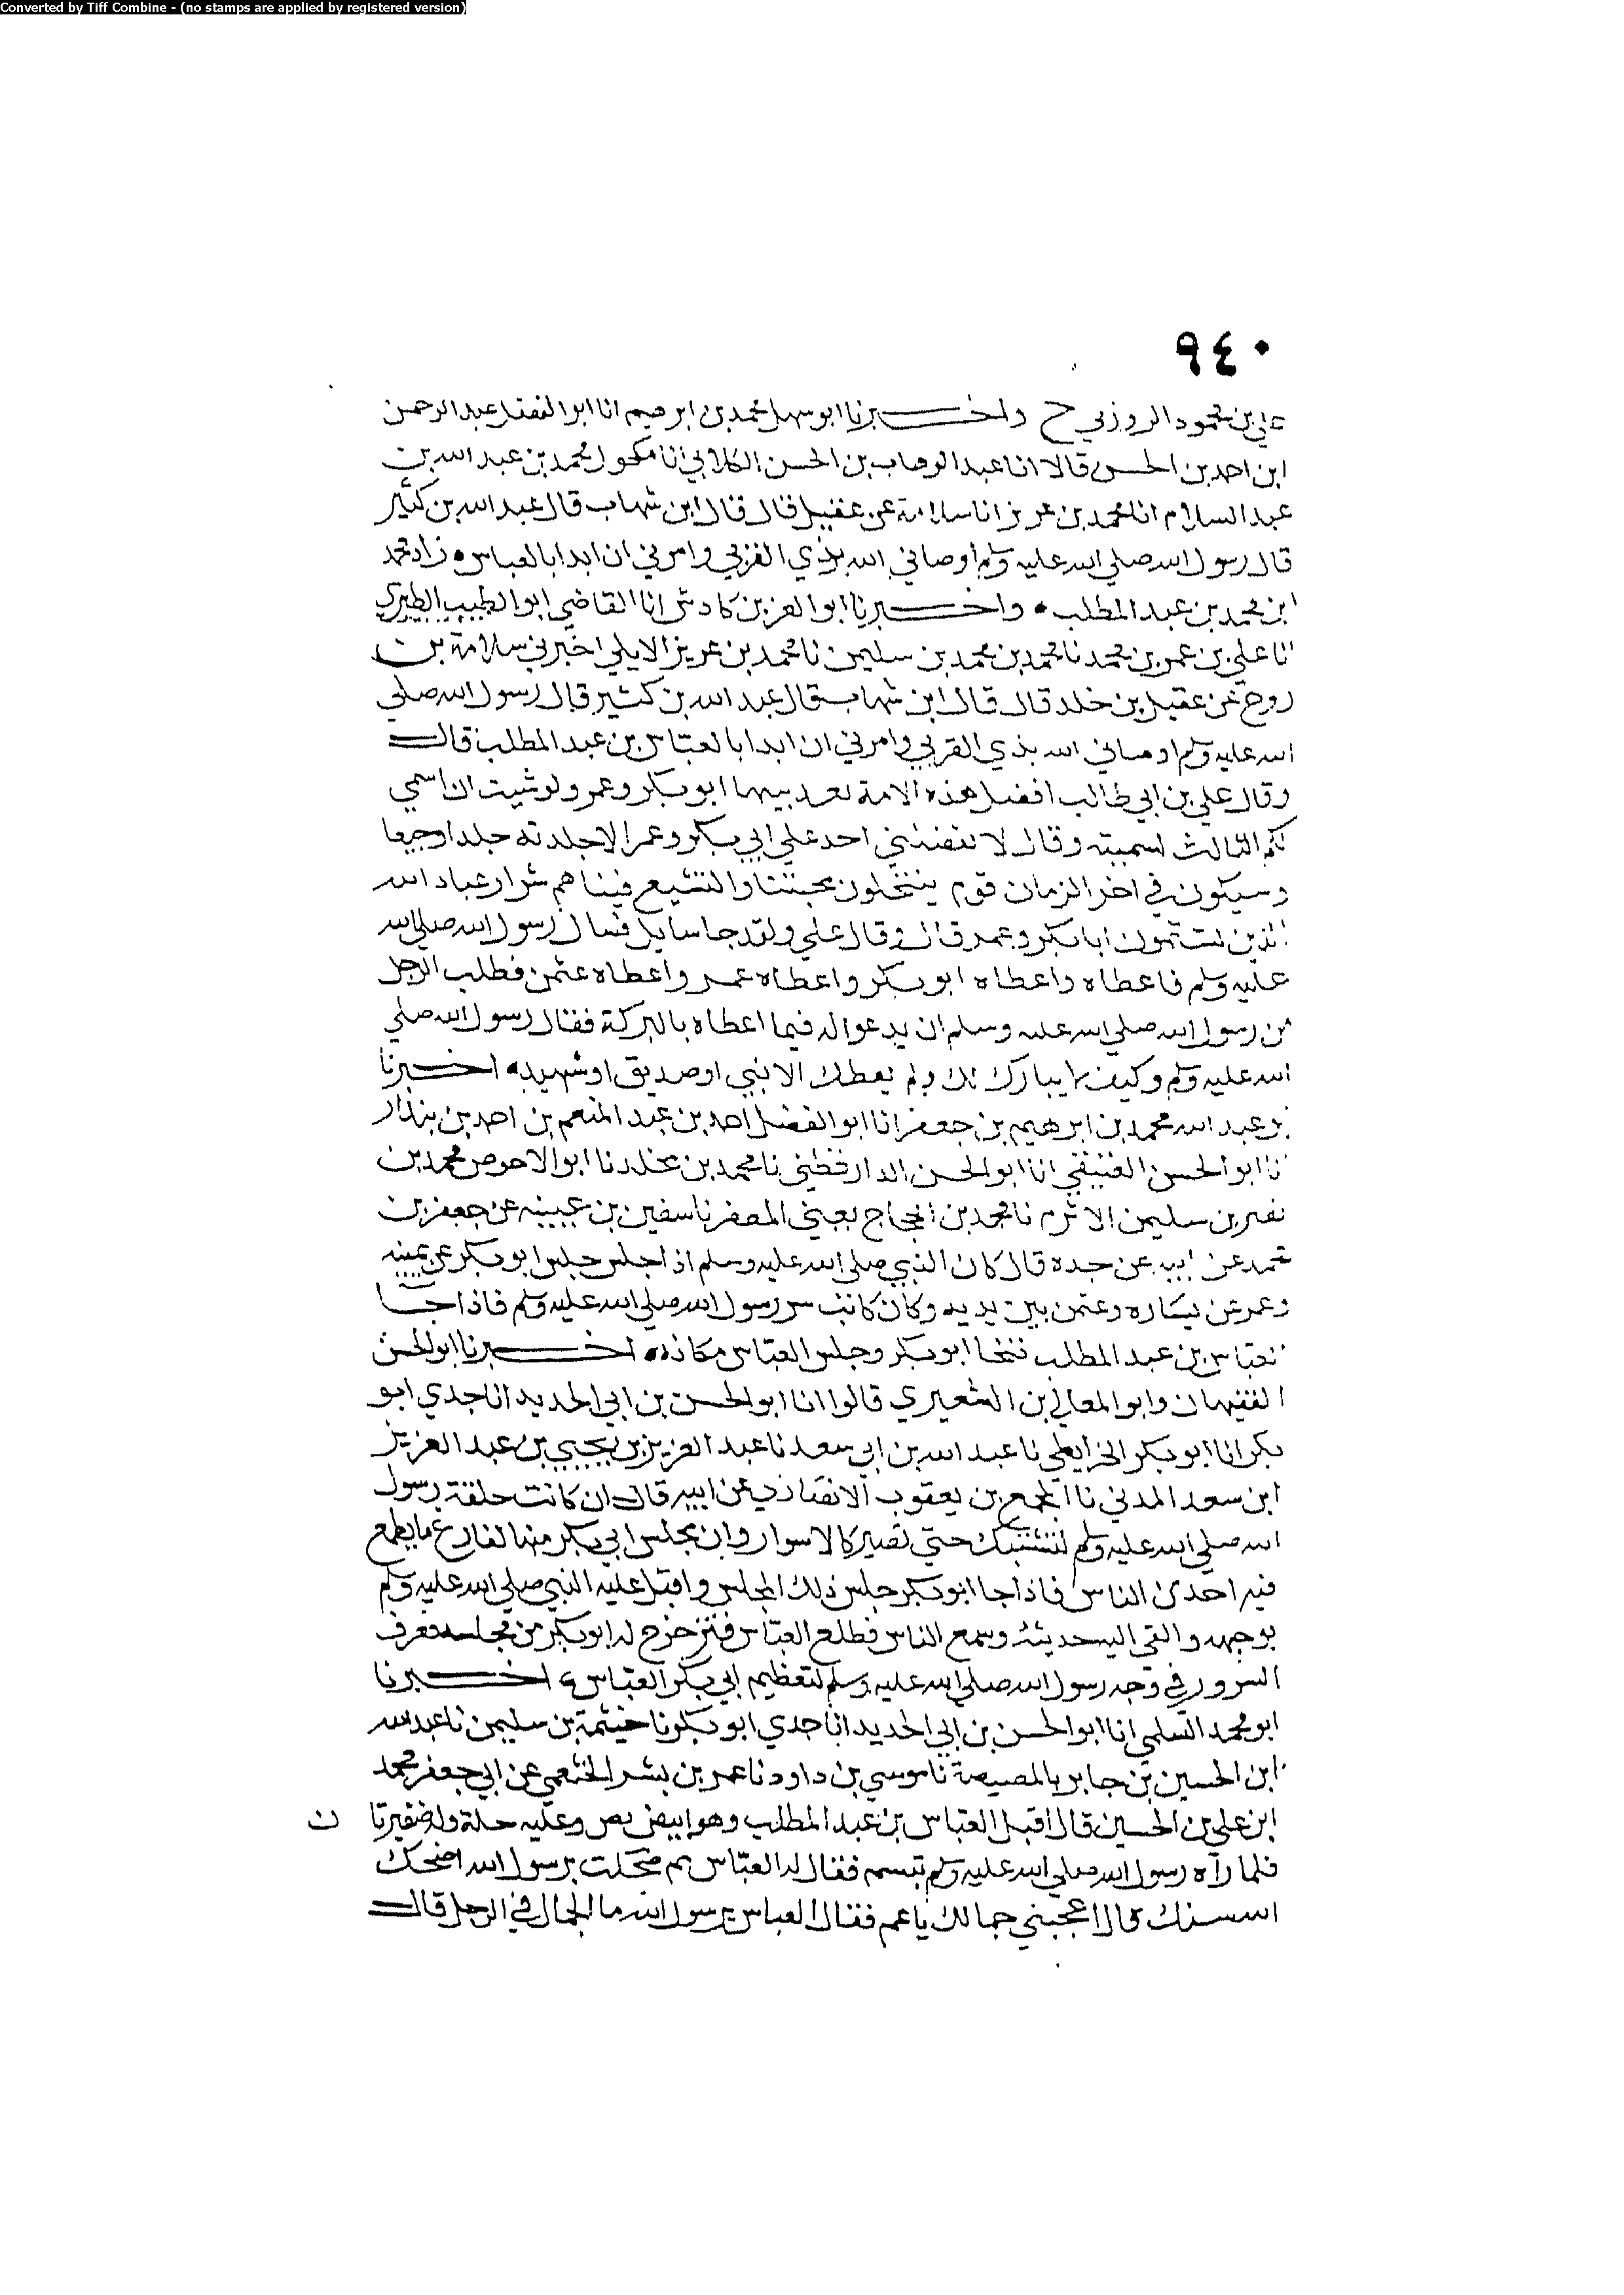 Converted by Tiff Combine - (no stamps are applied by registered version)
٩٤٠
علي بن محمود الزوزني ح واخبرنا ابو سهل محمد بن ابرهيم انا ابو الفضل عبد الرحمن
ابن احمد بن الحسن قالا انا عبد الوهاب بن الحسن الكلابي انا مكحول محمد بن عبد الله بن
عبد السلام انا محمد بن عزيز انا سلامة عن عقيل قال قال ابن شهاب قال عبد الله بن كثير
قال رسول الله صلي الله عليه وسلم اوصاني الله بذي القربي وامرني ان ابدا بالعباس زاد محمد
ابن محمد بن عبد المطلب واخبرنا ابو العز بن كادش انا القاضي ابو الطيب الطبري
انا علي بن عمر بن محمد نا محمد بن محمد بن سليمن نا محمد بن عزيز الايلي اخبرني سلامة بن
روح عن عقيل بن خلد قال قال ابن شهاب قال عبد الله بن كثير قال رسول الله صلي
الله عليه وسلم اوصاني الله بذي القربي وامرني ان ابدا بالعباس بن عبد المطلب قال
وقال علي بن ابي طالب افضل هذه الامة بعد نبيها ابو بكر وعمر ولو شيت ان اسمي
لكم الثالث لسميته وقال لا يفضلني احد علي ابي بكر وعمر الا جلدته جلدا وجيعا
وسيكون في اخر الزمان قوم ينتحلون محبتنا والتشيع فينا هم شرار عباد الله
الذين يشتمون ابا بكر وعمر قال وقال علي ولقد جا سايل فسال رسول الله صلي الله
عليه وسلم فاعطاه واعطاه ابو بكر واعطاه عمر واعطاه عثمن فطلب الرجل
من رسول الله صلي الله عليه وسلم ان يدعو اله فيما اعطاه بالبركة فقال رسول الله صلي
الله عليه وسلم وكيف لا يبارك لك ولم يعطك الا نبي او صديق او شهيد اخبرنا
بو عبد الله محمد بن ابرهيم بن جعفر انا ابو الفضل احمد بن عبد المنعم بن احمد بن بندار
انا ابو الحسن العتيقي انا ابو الحسن الدارقطني نا محمد بن مخلد نا ابو الاحوص محمد بن
نصر بن سليمن الاثرم نا محمد بن الحجاج يعني المصفر نا سفين بن عيينه عن جعفر بن
محمد عن ابيه عن جده قال كان النبي صلي الله عليه وسلم اذا جلس جلس ابو بكر عن يمينه
وعمر عن يساره وعثمن بين يديه وكان كاتب سر رسول الله صلي الله عليه وسلم فاذا جا
العباس بن عبد المطلب تنحا ابو بكر وجلس العباس مكانه اخبرنا ابو الحسن
الفقيهان وابو المعالي بن الشعيري قالوا انا ابو الحسن بن ابي الحديد انا جدي ابو
بكر انا ابو بكر الخرايطي نا عبد الله بن ابي سعد نا عبد العزيز بن يحيي بن عبد العزيز
ابن سعد المدني نا المجمع بن يعقوب الانصاري عن ابيه قال ان كانت حلقة رسول
الله صلي الله عليه وسلم لتشتبك حتي تصير كالاسوار وان مجلس ابي بكر منها لفارغ ما يطمع
فيه احد من الناس فاذا جا ابو بكر جلس ذلك المجلس واقبل عليه النبي صلي الله عليه وسلم
بوجهه والقي اليه حديثه وسمع الناس فطلع العباس فتزحزح له ابو بكر من مجلسه فعرف
السرور في وجه رسول الله صلي الله عليه وسلم لتعظيم ابي بكر العباس اخبرنا
ابو محمد السلمي انا ابو الحسن بن ابي الحديد انا جدي ابو بكر نا خيثمة بن سليمن نا عبد الله
ابن الحسين بن جابر بالمصيصة نا موسي بن داود نا عمر بن بشر الخثعمي عن ابي جعفر محمد
ابن علي بن الحسين قال اقبل العباس بن عبد المطلب وهو ابيض بص وعليه حلة وله ضفيرتا ن
فلما رآه رسول الله صلي الله عليه وسلم تبسم فقال له العباس مم ضحكت يرسول الله اضحك
الله سنك قال اعجبني جمالك يا عم فقال العباس يرسول الله ما الجمال في الرجل قال